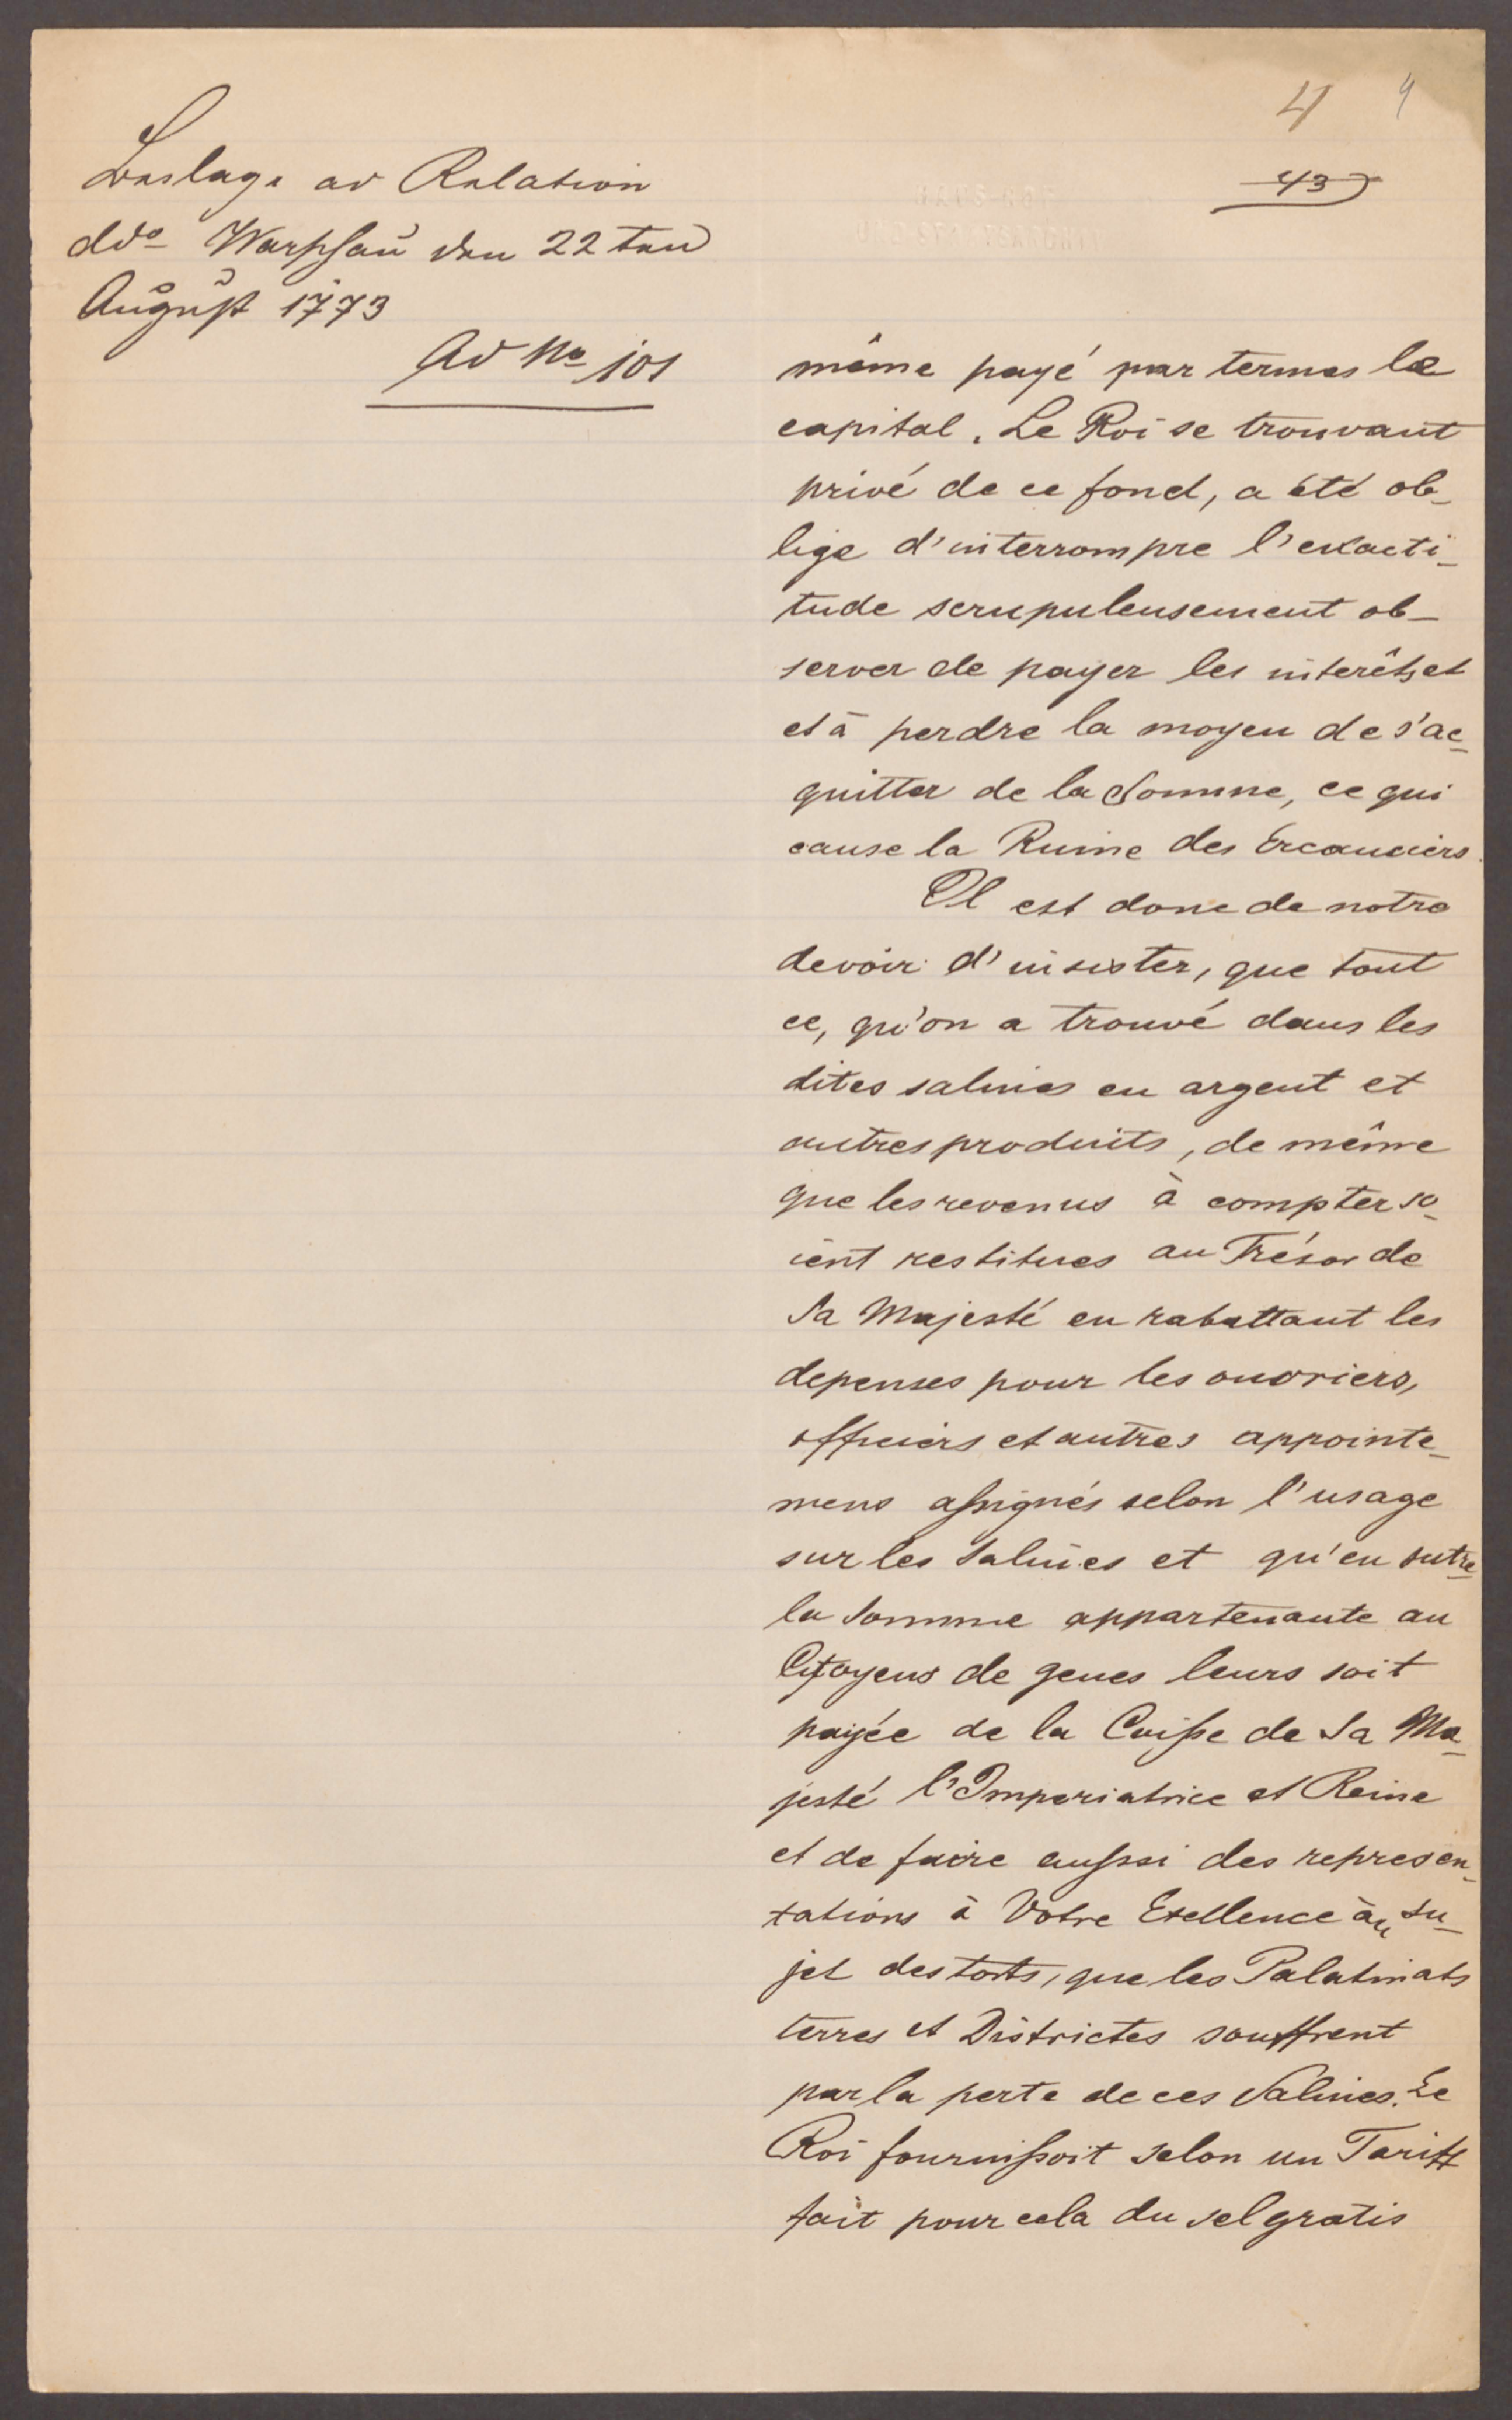 4 4
43
Beilage ad Relation
ddo Warschau den 22ten
August 1773
Ad No 101
même payé par termes le
capital. Le Roi se trouvant
privé de ce fond, a été ob-
lige d'interrompre l'exacti-
tude scrupuleusement ob-
server de payer les interêts et
et à perdre la moyen de s'ac-
quitter de la Somme, ce qui
cause la Ruine des Creanciers.
Il est donc de notre
devoir d'insister, que tout
ce, qu'on a trouvé dans les
dites salines en argent et
autres produits, de même
que les revenus à compter so-
ient restitues au Trésor de
Sa Majesté en rabattant les
depenses pour les ouvriers,
officiers et autres appointe-
mens assignés selon l'usage
sur les Salines et qu'en outre
la Somme appartenante au
Citoyens de genes leurs soit
payée de la Caisse de Sa Ma-
jesté l'Imperiatrice et Reine
et de faire aussi des represen-
tations à Votre Exellence àu su-
jet des torts, que les Palatinats
terres et Districtes souffrent
par la perte de ces Salines. Le
Roi fournissoit selon un Tariff
fait pour cela du sel gratis